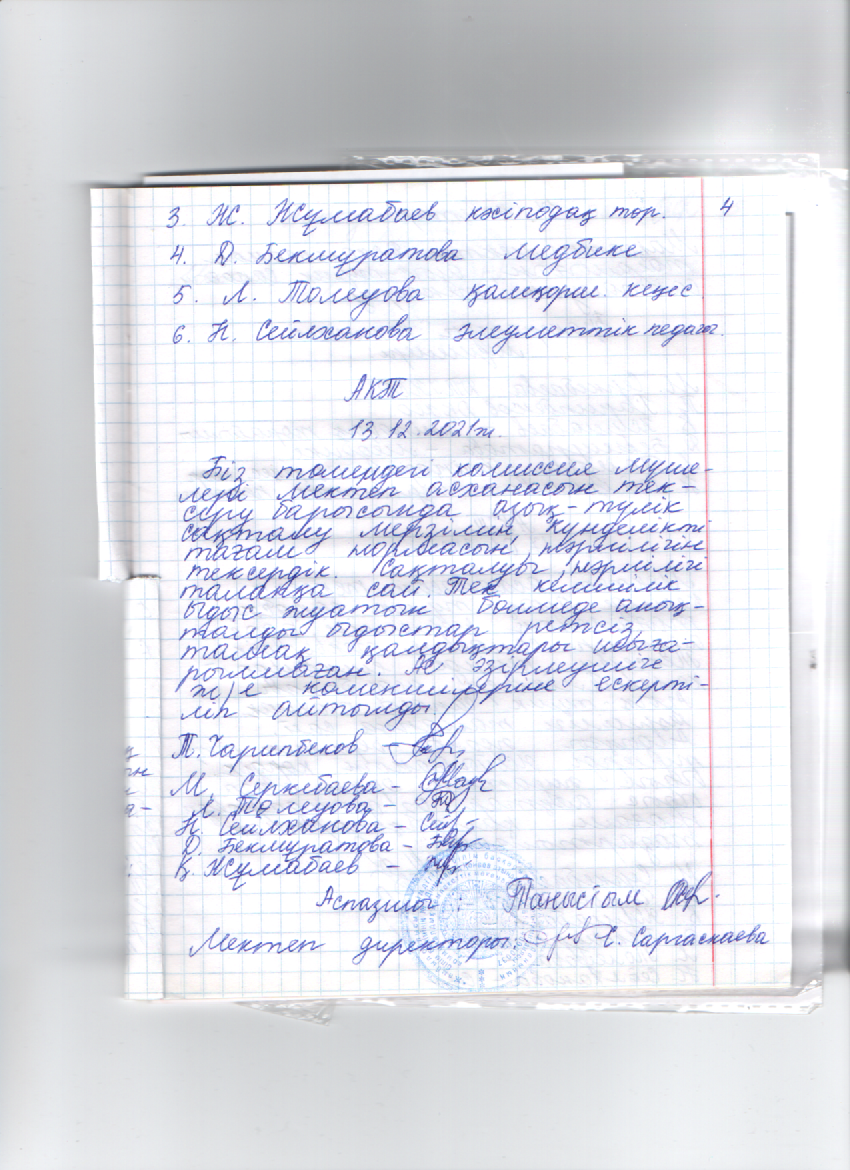 4
3. Ж. Жұмабаев кәсіподақ төр.
4. Д. Бекмұратова медбике
5. Л. Төлеуова қамқорш. кеңес.
6. Н. Сейлханова әлеуметтік педагог.
АКТ
13.12.2021ж.
Біз төмендегі комиссия мүше-
лері мектеп асханасын тек-
серу барысында азық-түлік
сақталу мерзімін, күнделікті
тағам нормасын, нәрлілігін
тексердік. Сақталуы, нәрлілігі
талапқа сай. Тек кемшілік
ыдыс жуатын бөлмеде анық-
талды ыдыстар ретсіз,
тамақ қалдықтары шыға-
рылмаған. Ас әзірлеушіге
ж/е көмекшілеріне ескерті-
ліп айтылды.
Т. Чарипбеков -
М. Серкебаева -
Л. Төлеуова -
Н. Сейлханова -
Д. Бекмуратова -
Қ. Жұмабаев -
Аспазшы: Таныстым
Мектеп директоры: С. Саргаскаева